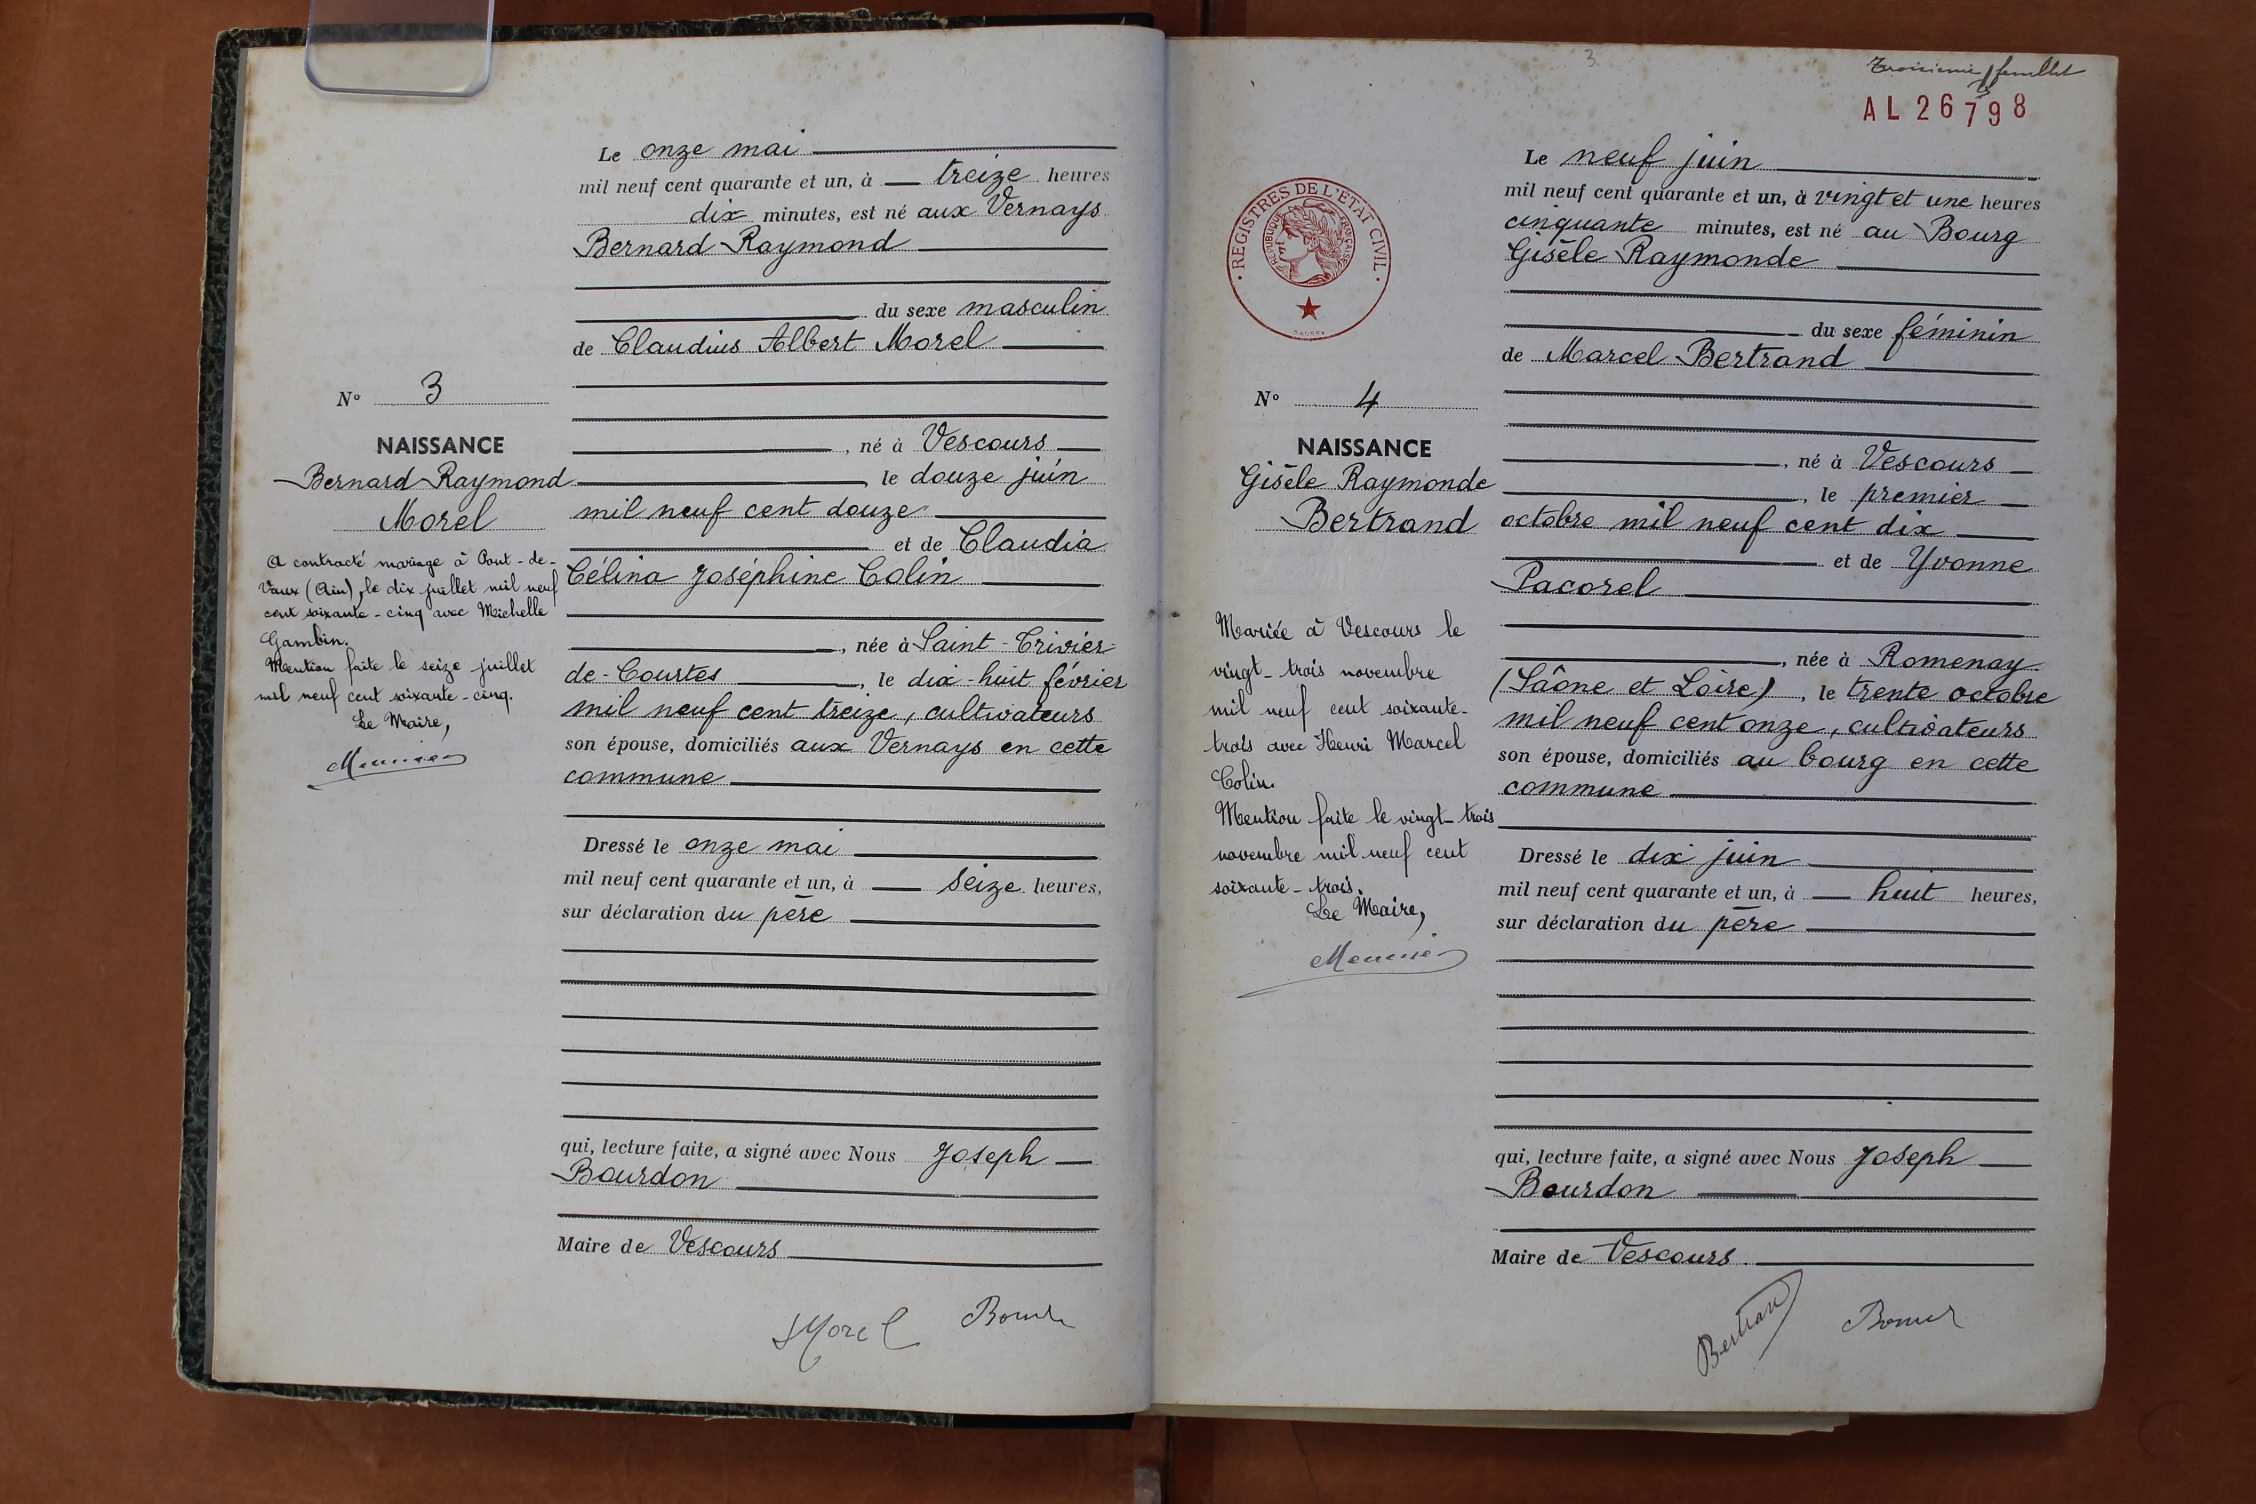 Le onze mai
mil neuf cent quarante et un, à treize heures
dix minutes, est né aux Vernays
Bernard Raymond
du sexe masculin
de Claudius Albert Morel
N° 3
, né à Vescours
NAISSANCE
Bernard Raymond
Morel
, le douze juin
mil neuf cent douze
et de Claudia
Célina Joséphine Colin
A contracté mariage à Pont-de-
Vaux (Ain), le dix juillet mil neuf
cent soixante-cinq avec Michelle
Gambin.
Mention faite le seize juillet
mil neuf cent soixante-cinq.
Le Maire,
Meunier
, née à Saint-Trivier-
de-Courtes, le dix-huit février
mil neuf cent treize, cultivateurs
son épouse, domiciliés aux Vernays en cette
commune
Dressé le onze mai
mil neuf cent quarante et un, à seize heures,
sur déclaration du père
qui, lecture faite, a signé avec Nous Joseph
Bourdon
Maire de Vescours
Morel
3
Troisième feuillet
AL 26798
Le neuf juin
mil neuf cent quarante et un, à vingt et une heures
cinquante minutes, est né au Bourg
Gisèle Raymonde
REGISTRES DE L'ÉTAT CIVIL
RÉPUBLIQUE FRANÇAISE
du sexe féminin
de Marcel Bertrand
N° 4
NAISSANCE
Gisèle Raymonde
Bertrand
, né à Vescours
, le premier
octobre mil neuf cent dix
et de Yvonne
Pacorel
Mariée à Vescours le
vingt-trois novembre
mil neuf cent soixante-
trois avec Henri Marcel
Colin.
Mention faite le vingt-trois
novembre mil neuf cent
soixante-trois.
Le Maire,
Meunier
, née à Romenay
(Saône et Loire), le trente octobre
mil neuf cent onze, cultivateurs
son épouse, domiciliés au bourg en cette
commune
Dressé le dix juin
mil neuf cent quarante et un, à huit heures,
sur déclaration du père
qui, lecture faite, a signé avec Nous Joseph
Bourdon
Maire de Vescours
Bertrand